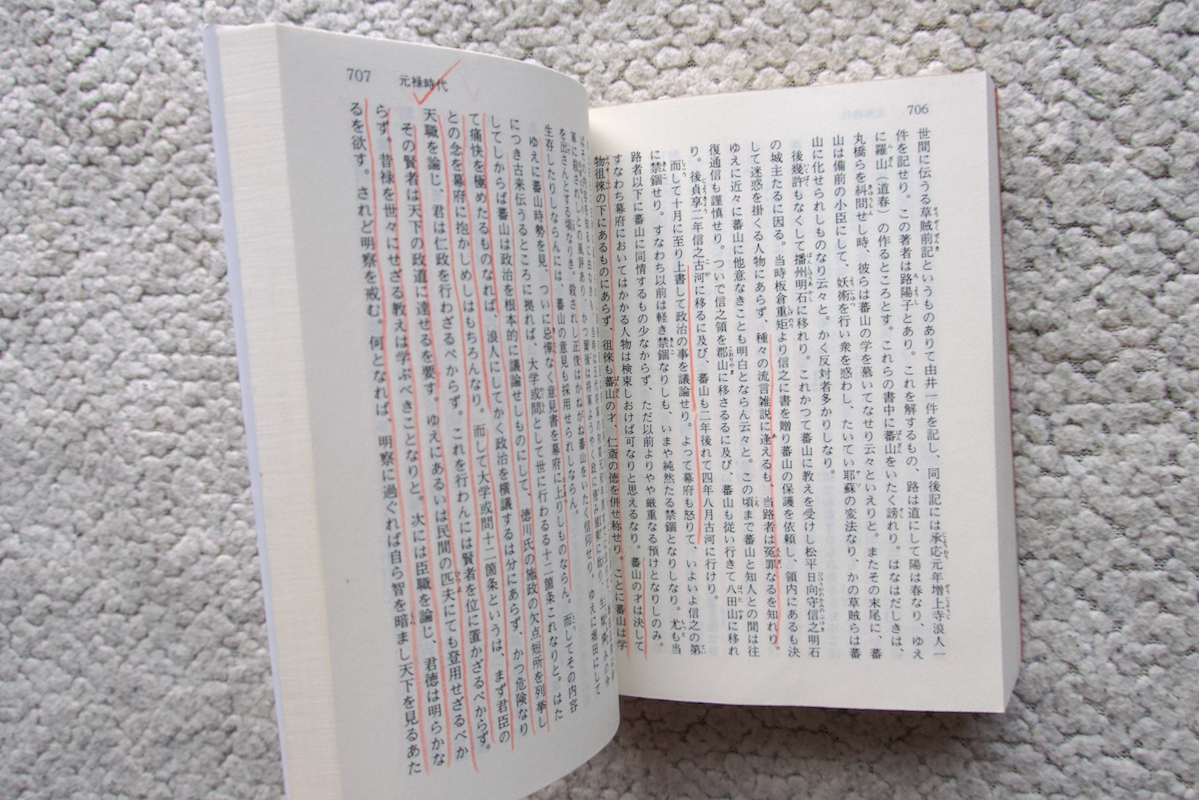 706
世間に伝うる草賊前記というものありて由井一件を記し、同後記には承応元年増上寺浪人一
件を記せり。この著者は路陽子とあり。これを解するもの、路は道にして陽は春なり、ゆえ
に羅山（道春）の作るところとす。これらの書中に蕃山をいたく謗れり。はなはだしきは、
丸橋らを糾問せし時、彼らは蕃山の学を慕いてなせり云々といえりと。またその末尾に、蕃
山は備前の小臣にして、妖術を行い衆を惑わし、たいてい耶蘇の変法なり、かの草賊らは蕃
山に化せられしものなり云々と。かく反対者多かりしなり。
後幾許もなくして播州明石に移れり。これかつて蕃山に教えを受けし松平日向守信之明石
の城主たるに因る。当時板倉重矩より信之に書を贈り蕃山の保護を依頼し、領内にあるも決
して迷惑を掛くる人物にあらず、種々の流言雑説に逢えるも、当路者は冤罪なるを知れり。
ゆえに近々に蕃山に他意なきことも明白とならん云々と。この頃まで蕃山と知人との間は往
復通信も謹慎せり。ついで信之領を郡山に移さるるに及び、蕃山も従い行きて八田山に移れ
り。後貞享二年信之古河に移るに及び、蕃山も二年後れて四年八月古河に行けり。
而して十月に至り上書して政治の事を議論せり。よって幕府も怒りて、いよいよ信之の第
に禁錮せり。すなわち以前は軽き禁錮なりしも、いまや純然たる禁錮となりしなり。尤も当
路者以下に蕃山に同情するもの少なからず、ただ以前よりやや厳重なる預けとなりしのみ。
すなわち幕府においてはかかる人物は検束しおけば可なりと思えるなり。蕃山の才は決して
物徂徠の下にあるものにあらず、徂徠も蕃山の才、仁斎の徳を併せ称せり。ことに蕃山は学
707 元禄時代
を出さんとする頃なりき。
生存したりしならんには、蕃山の意見も採用せられしならん。
ゆえに蕃山時勢を見、ついに忌憚なく意見書を幕府に上りしものならん。而してその内容
につき古来伝うるところに拠れば、大学或問として世に行わるる十二箇条これなりと。はた
してしからば蕃山は政治を根本的に議論せしものにして、徳川氏の施政の欠点短所を列挙し
て痛快を極めたるものなれば、浪人にしてかく政治を横議するは分にあらず、かつ危険なり
との念を幕府に抱かしめしはもちろんなり。而して大学或問十二箇条というは、まず君臣の
天職を論じ、君は仁政を行わざるべからず。これを行わんには賢者を位に置かざるべからず。
その賢者は天下の政道に達せるを要す。ゆえにあるいは民間の匹夫にても登用せざるべか
らず。昔禄を世々にせざる教えは学ぶべきことなりと。次には臣職を論じ、君徳は明らかな
るを欲す。されど明察を戒む。何となれば、明察に過ぐれば自ら智を暗まし天下を見るあた